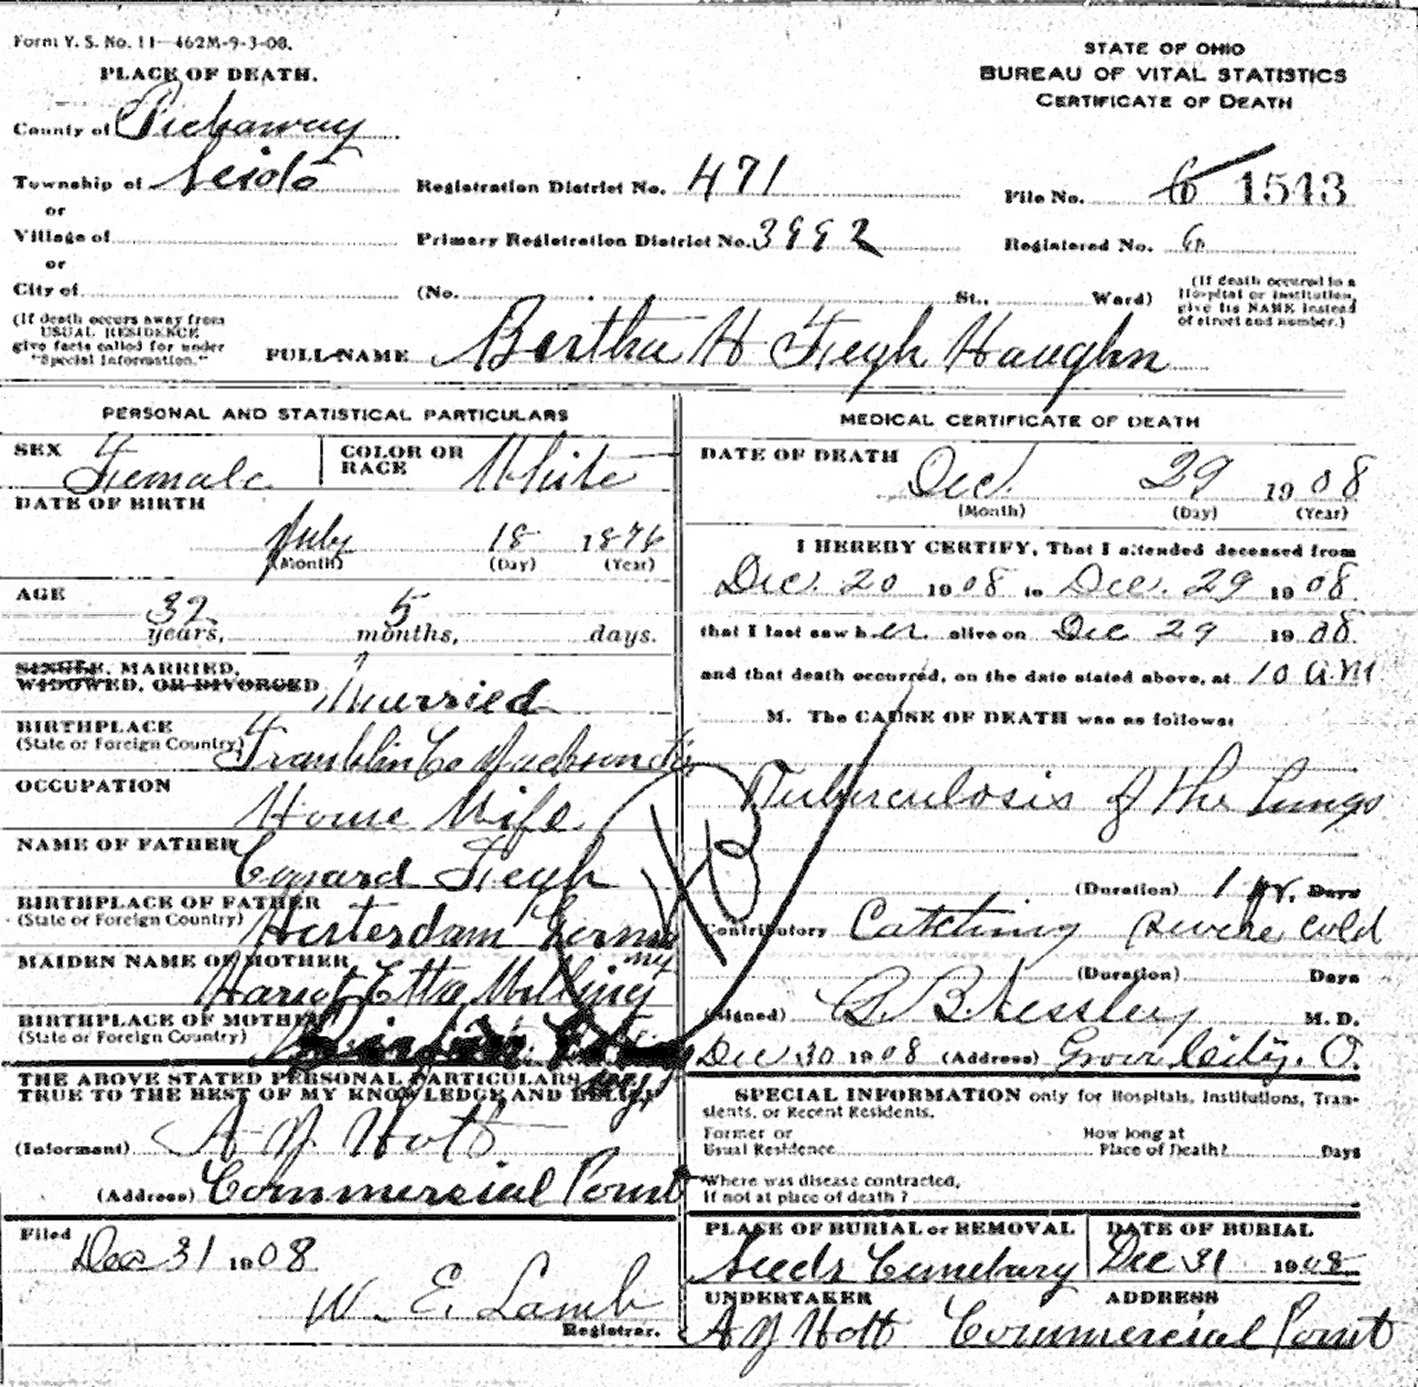 Form V. S. No. 11—462M-9-3-08.
STATE OF OHIO
BUREAU OF VITAL STATISTICS
CERTIFICATE OF DEATH
PLACE OF DEATH.
County of Pickaway
Township of Scioto
Registration District No. 471
File No. 6 1543
or
Village of
Primary Registration District No. 3992
Registered No. 6
or
City of
(No. St., Ward)
(If death occurred in a Hospital or Institution, give its NAME instead of street and number.)
(If death occurs away from USUAL RESIDENCE give facts called for under "Special Information.")
FULL NAME Bertha H Feyh Haughn
PERSONAL AND STATISTICAL PARTICULARS
SEX Female
COLOR OR RACE White
DATE OF BIRTH
July 18 1876
(Month) (Day) (Year)
AGE
32 years, 5 months, days.
SINGLE, MARRIED,
WIDOWED, OR DIVORCED Married
BIRTHPLACE
(State or Foreign Country) Franklin Co Jackson
OCCUPATION
House Wife
NAME OF FATHER
Feyh
BIRTHPLACE OF FATHER
(State or Foreign Country) Germany
MAIDEN NAME OF MOTHER
Etta
BIRTHPLACE OF MOTHER
(State or Foreign Country)
THE ABOVE STATED PERSONAL PARTICULARS ARE
TRUE TO THE BEST OF MY KNOWLEDGE AND BELIEF
(Informant) A Hott
(Address) Commercial Point
Filed
Dec 31 1908
W. E. Lamb
Registrar.
MEDICAL CERTIFICATE OF DEATH
DATE OF DEATH
Dec. 29 1908
(Month) (Day) (Year)
I HEREBY CERTIFY, That I attended deceased from
Dec. 20 1908 to Dec. 29 1908.
that I last saw her alive on Dec 29 1908.
and that death occurred, on the date stated above, at 10 a.m
M. The CAUSE OF DEATH was as follows:
Tuberculosis of the Lungs
(Duration) 1 yr. Days
Contributory Catching severe cold
(Duration) Days
(Signed) M. D.
Dec 30 1908 (Address) Grove City. O.
SPECIAL INFORMATION only for Hospitals, Institutions, Transients, or Recent Residents.
Former or
Usual Residence
How long at
Place of Death? Days
Where was disease contracted,
If not at place of death?
PLACE OF BURIAL or REMOVAL
Seeds Cemetary
DATE OF BURIAL
Dec 31 1908
UNDERTAKER
A Hott
ADDRESS
Commercial Point